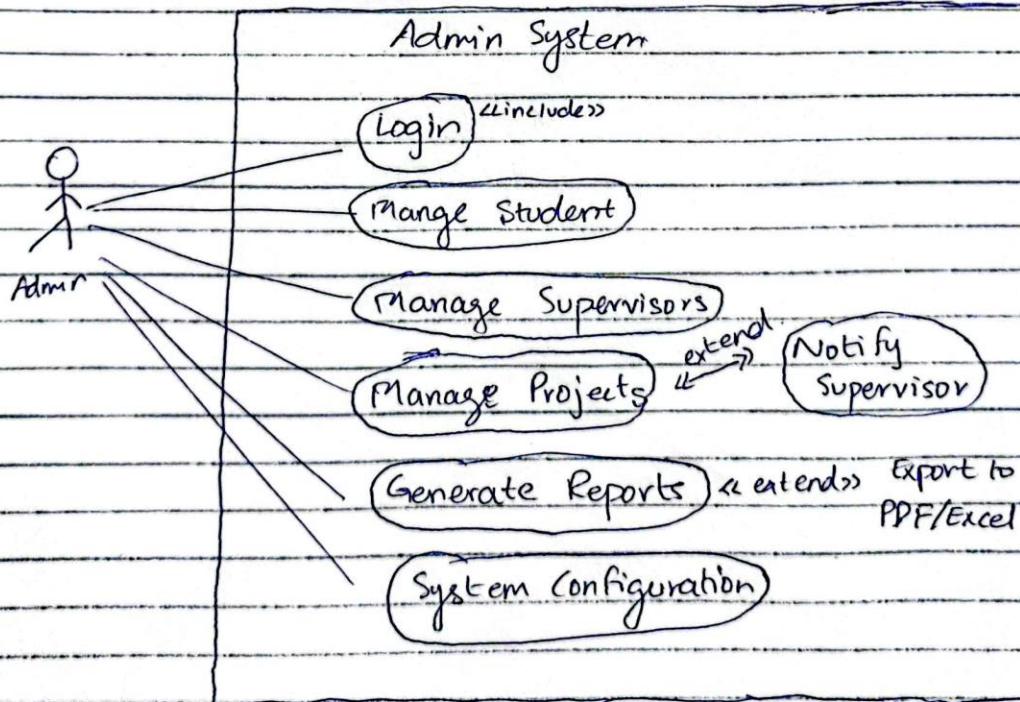 Admin System
Login <<include>>
Mange Student
Admin
Manage Supervisors
Manage Projects <<extend>> Notify
Supervisor
Generate Reports <<extend>> Export to
PDF/Excel
System Configuration